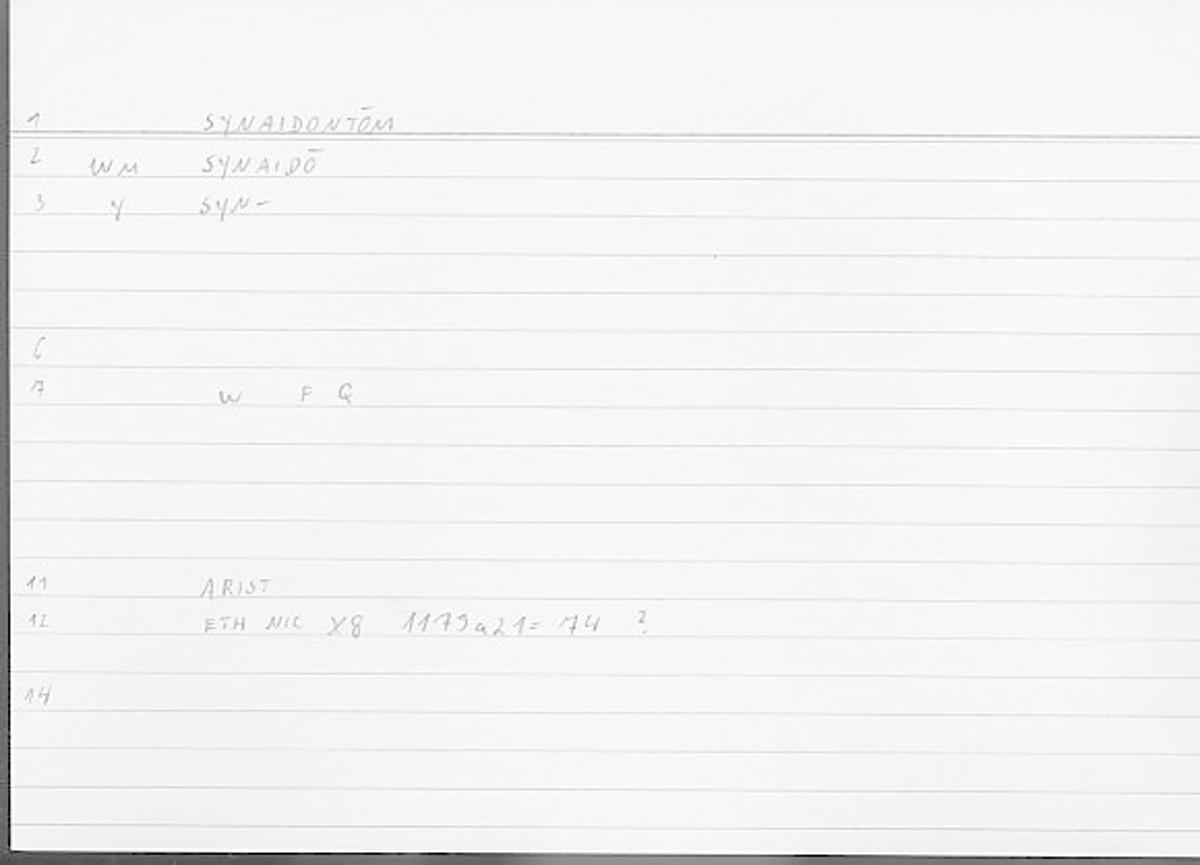 1 SYNAIDONTŌM
2 WM SYNAIDŌ
3 Y SYN-
6
7 W F Q
11 ARIST
12 ETH NIC X8 1179a21= 74 ?
14